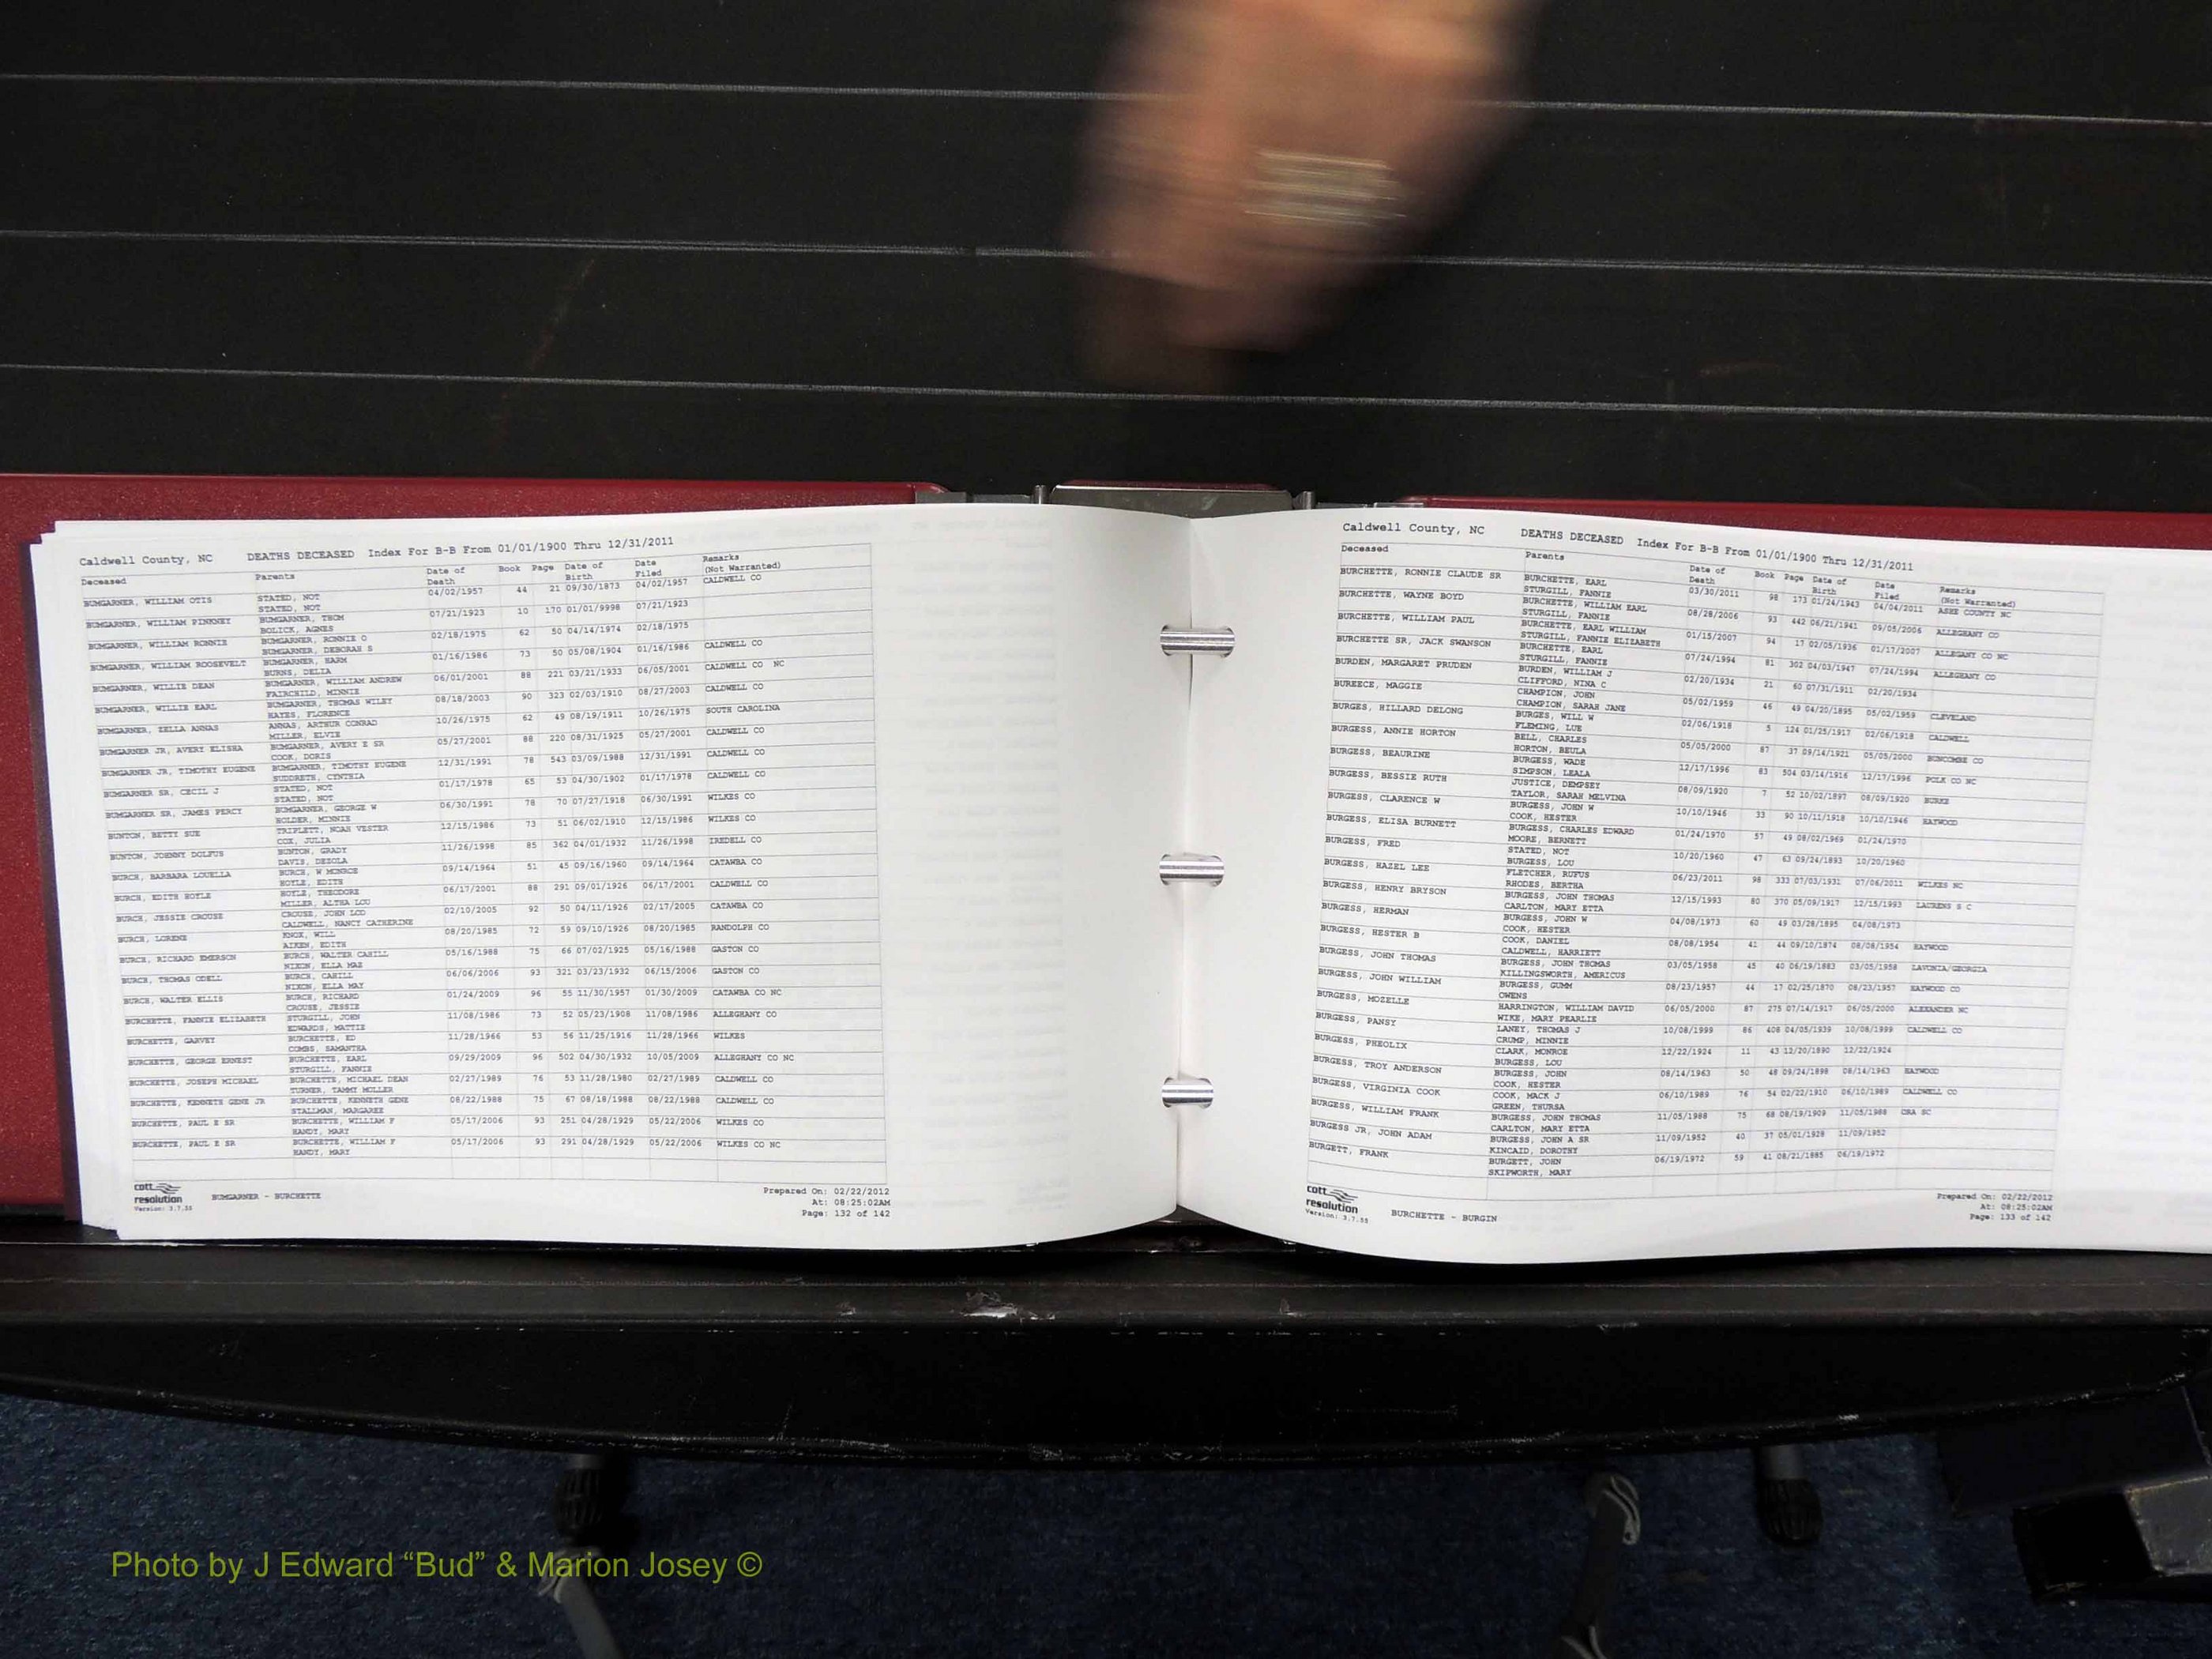 Caldwell County, NC DEATHS DECEASED Index For B-B From 01/01/1900 Thru 12/31/2011
Deceased Parents Date of Death Book Page Date of Birth Date Filed Remarks (Not Warranted)
BUMGARNER, WILLIAM OTIS STATED, NOT 04/02/1957 44 21 09/30/1873 04/02/1957 CALDWELL CO
STATED, NOT
BUMGARNER, WILLIAM PINKNEY BUMGARNER, THOM 07/21/1923 10 170 01/01/9998 07/21/1923
BOLICK, AGNES
BUMGARNER, WILLIAM RONNIE BUMGARNER, RONNIE O 02/18/1975 62 50 04/14/1974 02/18/1975
BUMGARNER, DEBORAH S
BUMGARNER, WILLIAM ROOSEVELT BUMGARNER, HARM 01/16/1986 73 50 05/08/1904 01/16/1986 CALDWELL CO
BURNS, DELIA
BUMGARNER, WILLIE DEAN BUMGARNER, WILLIAM ANDREW 06/01/2001 88 221 03/21/1933 06/05/2001 CALDWELL CO NC
FAIRCHILD, MINNIE
BUMGARNER, WILLIE EARL BUMGARNER, THOMAS WILEY 08/18/2003 90 323 02/03/1910 08/27/2003 CALDWELL CO
HAYES, FLORENCE
BUMGARNER, ZELLA ANNAS ANNAS, ARTHUR CONRAD 10/26/1975 62 49 08/19/1911 10/26/1975 SOUTH CAROLINA
MILLER, ELVIE
BUMGARNER JR, AVERY ELISHA BUMGARNER, AVERY E SR 05/27/2001 88 220 08/31/1925 05/27/2001 CALDWELL CO
COOK, DORIS
BUMGARNER JR, TIMOTHY EUGENE BUMGARNER, TIMOTHY EUGENE 12/31/1991 78 543 03/09/1988 12/31/1991 CALDWELL CO
SUDDRETH, CYNTHIA
BUMGARNER SR, CECIL J STATED, NOT 01/17/1978 65 53 04/30/1902 01/17/1978 CALDWELL CO
STATED, NOT
BUMGARNER SR, JAMES PERCY BUMGARNER, GEORGE W 06/30/1991 78 70 07/27/1918 06/30/1991 WILKES CO
HOLDER, MINNIE
BUNTON, BETTY SUE TRIPLETT, NOAH VESTER 12/15/1986 73 51 06/02/1910 12/15/1986 WILKES CO
COX, JULIA
BUNTON, JOHNNY DOLFUS BUNTON, GRADY 11/26/1998 85 362 04/01/1932 11/26/1998 IREDELL CO
DAVIS, DEZOLA
BURCH, BARBARA LOUELLA BURCH, W MONROE 09/14/1964 51 45 09/16/1960 09/14/1964 CATAWBA CO
HOYLE, EDITH
BURCH, EDITH HOYLE HOYLE, THEODORE 06/17/2001 88 291 09/01/1926 06/17/2001 CALDWELL CO
MILLER, ALTHA LOU
BURCH, JESSIE CROUSE CROUSE, JOHN LOD 02/10/2005 92 50 04/11/1926 02/17/2005 CATAWBA CO
CALDWELL, NANCY CATHERINE
BURCH, LORENE KNOX, WILL 08/20/1985 72 59 09/10/1926 08/20/1985 RANDOLPH CO
AIKEN, EDITH
BURCH, RICHARD EMERSON BURCH, WALTER CAHILL 05/16/1988 75 66 07/02/1925 05/16/1988 GASTON CO
NIXON, ELLA MAE
BURCH, THOMAS ODELL BURCH, CAHILL 06/06/2006 93 321 03/23/1932 06/15/2006 GASTON CO
NIXON, ELLA MAY
BURCH, WALTER ELLIS BURCH, RICHARD 01/24/2009 96 55 11/30/1957 01/30/2009 CATAWBA CO NC
CROUSE, JESSIE
BURCHETTE, FANNIE ELIZABETH STURGILL, JOHN 11/08/1986 73 52 05/23/1908 11/08/1986 ALLEGHANY CO
EDWARDS, MATTIE
BURCHETTE, GARVEY BURCHETTE, ED 11/28/1966 53 56 11/25/1916 11/28/1966 WILKES
COMBS, SAMANTHA
BURCHETTE, GEORGE ERNEST BURCHETTE, EARL 09/29/2009 96 502 04/30/1932 10/05/2009 ALLEGHANY CO NC
STURGILL, FANNIE
BURCHETTE, JOSEPH MICHAEL BURCHETTE, MICHAEL DEAN 02/27/1989 76 53 11/28/1980 02/27/1989 CALDWELL CO
TURNER, TAMMY MOLLER
BURCHETTE, KENNETH GENE JR BURCHETTE, KENNETH GENE 08/22/1988 75 67 08/18/1988 08/22/1988 CALDWELL CO
STALLMAN, MARGAREE
BURCHETTE, PAUL E SR BURCHETTE, WILLIAM F 05/17/2006 93 251 04/28/1929 05/22/2006 WILKES CO
HANDY, MARY
BURCHETTE, PAUL E SR BURCHETTE, WILLIAM F 05/17/2006 93 291 04/28/1929 05/22/2006 WILKES CO NC
HANDY, MARY
cott resolution
Version: 3.7.55
BUMGARNER - BURCHETTE
Prepared On: 02/22/2012
At: 08:25:02AM
Page: 132 of 142
Caldwell County, NC DEATHS DECEASED Index For B-B From 01/01/1900 Thru 12/31/2011
Deceased Parents Date of Death Book Page Date of Birth Date Filed Remarks (Not Warranted)
BURCHETTE, RONNIE CLAUDE SR BURCHETTE, EARL 03/30/2011 98 173 01/24/1943 04/04/2011 ASHE COUNTY NC
STURGILL, FANNIE
BURCHETTE, WAYNE BOYD BURCHETTE, WILLIAM EARL 08/28/2006 93 442 06/21/1941 09/05/2006 ALLEGHANY CO
STURGILL, FANNIE
BURCHETTE, WILLIAM PAUL BURCHETTE, EARL WILLIAM 01/15/2007 94 17 02/05/1936 01/17/2007 ALLEGANY CO NC
STURGILL, FANNIE ELIZABETH
BURCHETTE SR, JACK SWANSON BURCHETTE, EARL 07/24/1994 81 302 04/03/1947 07/24/1994 ALLEGHANY CO
STURGILL, FANNIE
BURDEN, MARGARET PRUDEN BURDEN, WILLIAM J 02/20/1934 21 60 07/31/1911 02/20/1934
CLIFFORD, NINA C
BUREECE, MAGGIE CHAMPION, JOHN 05/02/1959 46 49 04/20/1895 05/02/1959 CLEVELAND
CHAMPION, SARAH JANE
BURGES, HILLARD DELONG BURGES, WILL W 02/06/1918 5 124 01/25/1917 02/06/1918 CALDWELL
FLEMING, LUE
BURGESS, ANNIE HORTON BELL, CHARLES 05/05/2000 87 37 09/14/1921 05/05/2000 BUNCOMBE CO
HORTON, BEULA
BURGESS, BEAURINE BURGESS, WADE 12/17/1996 83 504 03/14/1916 12/17/1996 POLK CO NC
SIMPSON, LEALA
BURGESS, BESSIE RUTH JUSTICE, DEMPSEY 08/09/1920 7 52 10/02/1897 08/09/1920 BURKE
TAYLOR, SARAH MELVINA
BURGESS, CLARENCE W BURGESS, JOHN W 10/10/1946 33 90 10/11/1918 10/10/1946 HAYWOOD
COOK, HESTER
BURGESS, ELISA BURNETT BURGESS, CHARLES EDWARD 01/24/1970 57 49 08/02/1969 01/24/1970
MOORE, BERNETT
BURGESS, FRED STATED, NOT 10/20/1960 47 63 09/24/1893 10/20/1960
BURGESS, LOU
BURGESS, HAZEL LEE FLETCHER, RUFUS 06/23/2011 98 333 07/03/1931 07/06/2011 WILKES NC
RHODES, BERTHA
BURGESS, HENRY BRYSON BURGESS, JOHN THOMAS 12/15/1993 80 370 05/09/1917 12/15/1993 LAURENS S C
CARLTON, MARY ETTA
BURGESS, HERMAN BURGESS, JOHN W 04/08/1973 60 49 03/28/1895 04/08/1973
COOK, HESTER
BURGESS, HESTER B COOK, DANIEL 08/08/1954 41 44 09/10/1874 08/08/1954 HAYWOOD
CALDWELL, HARRIETT
BURGESS, JOHN THOMAS BURGESS, JOHN THOMAS 03/05/1958 45 40 06/19/1883 03/05/1958 LAVONIA/GEORGIA
KILLINGSWORTH, AMERICUS
BURGESS, JOHN WILLIAM BURGESS, GUMM 08/23/1957 44 17 02/25/1870 08/23/1957 HAYWOOD CO
OWENS
BURGESS, MOZELLE HARRINGTON, WILLIAM DAVID 06/05/2000 87 275 07/14/1917 06/05/2000 ALEXANDER NC
WIKE, MARY PEARLIE
BURGESS, PANSY LANEY, THOMAS J 10/08/1999 86 408 04/05/1939 10/08/1999 CALDWELL CO
CRUMP, MINNIE
BURGESS, PHEOLIX CLARK, MONROE 12/22/1924 11 43 12/20/1890 12/22/1924
BURGESS, LOU
BURGESS, TROY ANDERSON BURGESS, JOHN 08/14/1963 50 48 09/24/1898 08/14/1963 HAYWOOD
COOK, HESTER
BURGESS, VIRGINIA COOK COOK, MACK J 06/10/1989 76 54 02/22/1910 06/10/1989 CALDWELL CO
GREEN, THURSA
BURGESS, WILLIAM FRANK BURGESS, JOHN THOMAS 11/05/1988 75 68 08/19/1909 11/05/1988 ORA SC
CARLTON, MARY ETTA
BURGESS JR, JOHN ADAM BURGESS, JOHN A SR 11/09/1952 40 37 05/01/1928 11/09/1952
KINCAID, DOROTHY
BURGETT, FRANK BURGETT, JOHN 06/19/1972 59 41 08/21/1885 06/19/1972
SKIPWORTH, MARY
cott resolution
Version: 3.7.55
BURCHETTE - BURGIN
Prepared On: 02/22/2012
At: 08:25:02AM
Page: 133 of 142
Photo by J Edward “Bud” & Marion Josey ©